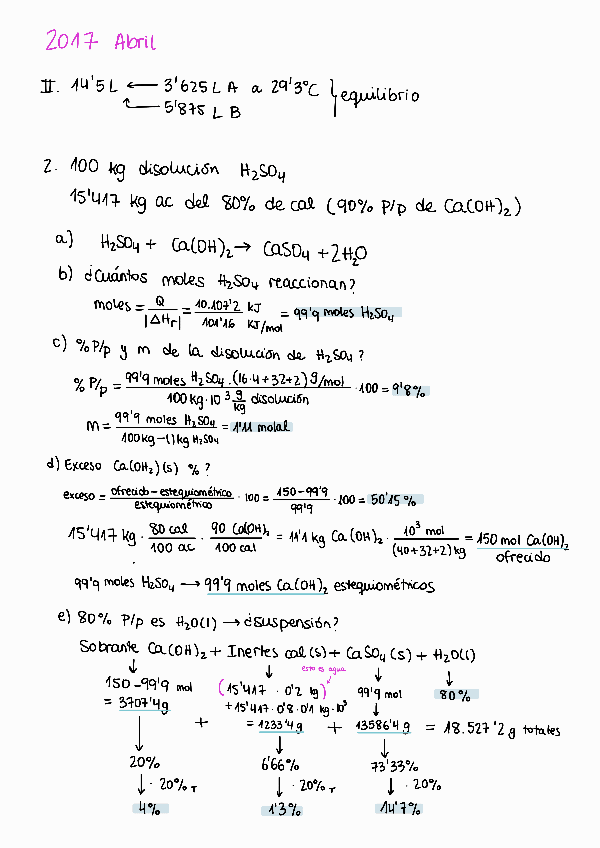 2017 Abril
II. 14'5 L ← 3'625 L A a 29'3ºC } equilibrio
← 5'875 L B
2. 100 kg disolución H₂SO₄
15'417 kg ac del 80% de cal (90% P/p de Ca(OH)₂)
a) H₂SO₄ + Ca(OH)₂ → CaSO₄ + 2H₂O
b) ¿Cuántos moles H₂SO₄ reaccionan?
moles = Q / |ΔHr| = 10.107'2 kJ / 101'16 kJ/mol = 99'9 moles H₂SO₄
c) % P/p y m de la disolución de H₂SO₄?
% P/p = 99'9 moles H₂SO₄ · (16·4+32+2) g/mol / 100 kg · 10³ g/kg disolución · 100 = 9'8%
m = 99'9 moles H₂SO₄ / 100 kg - () kg H₂SO₄ = 1'11 molal
d) Exceso Ca(OH₂) (s) % ?
exceso = ofrecido - estequiométrico / estequiométrico · 100 = 150 - 99'9 / 99'9 · 100 = 50'15 %
15'417 kg · 80 cal / 100 ac · 90 Ca(OH)₂ / 100 cal = 11'1 kg Ca(OH)₂ · 10³ mol / (40+32+2) kg = 150 mol Ca(OH)₂
ofrecido
99'9 moles H₂SO₄ → 99'9 moles Ca(OH)₂ estequiométricos
e) 80% P/p es H₂O(l) → ¿suspensión?
Sobrante Ca(OH)₂ + Inertes cal (s) + CaSO₄ (s) + H₂O(l)
↓ ↓ esto es agua ↓ ↓
150 - 99'9 mol (15'417 · 0'2 kg) 99'9 mol 80%
= 3707'4g + 15'417 · 0'8 · 0'1 kg · 10³ ↓
+ = 1233'4 g + 13586'4 g = 18.527'2 g totales
↓ ↓ ↓
20% 6'66% 73'33%
↓ · 20% T ↓ · 20% T ↓ · 20%
4% 1'3% 14'7%